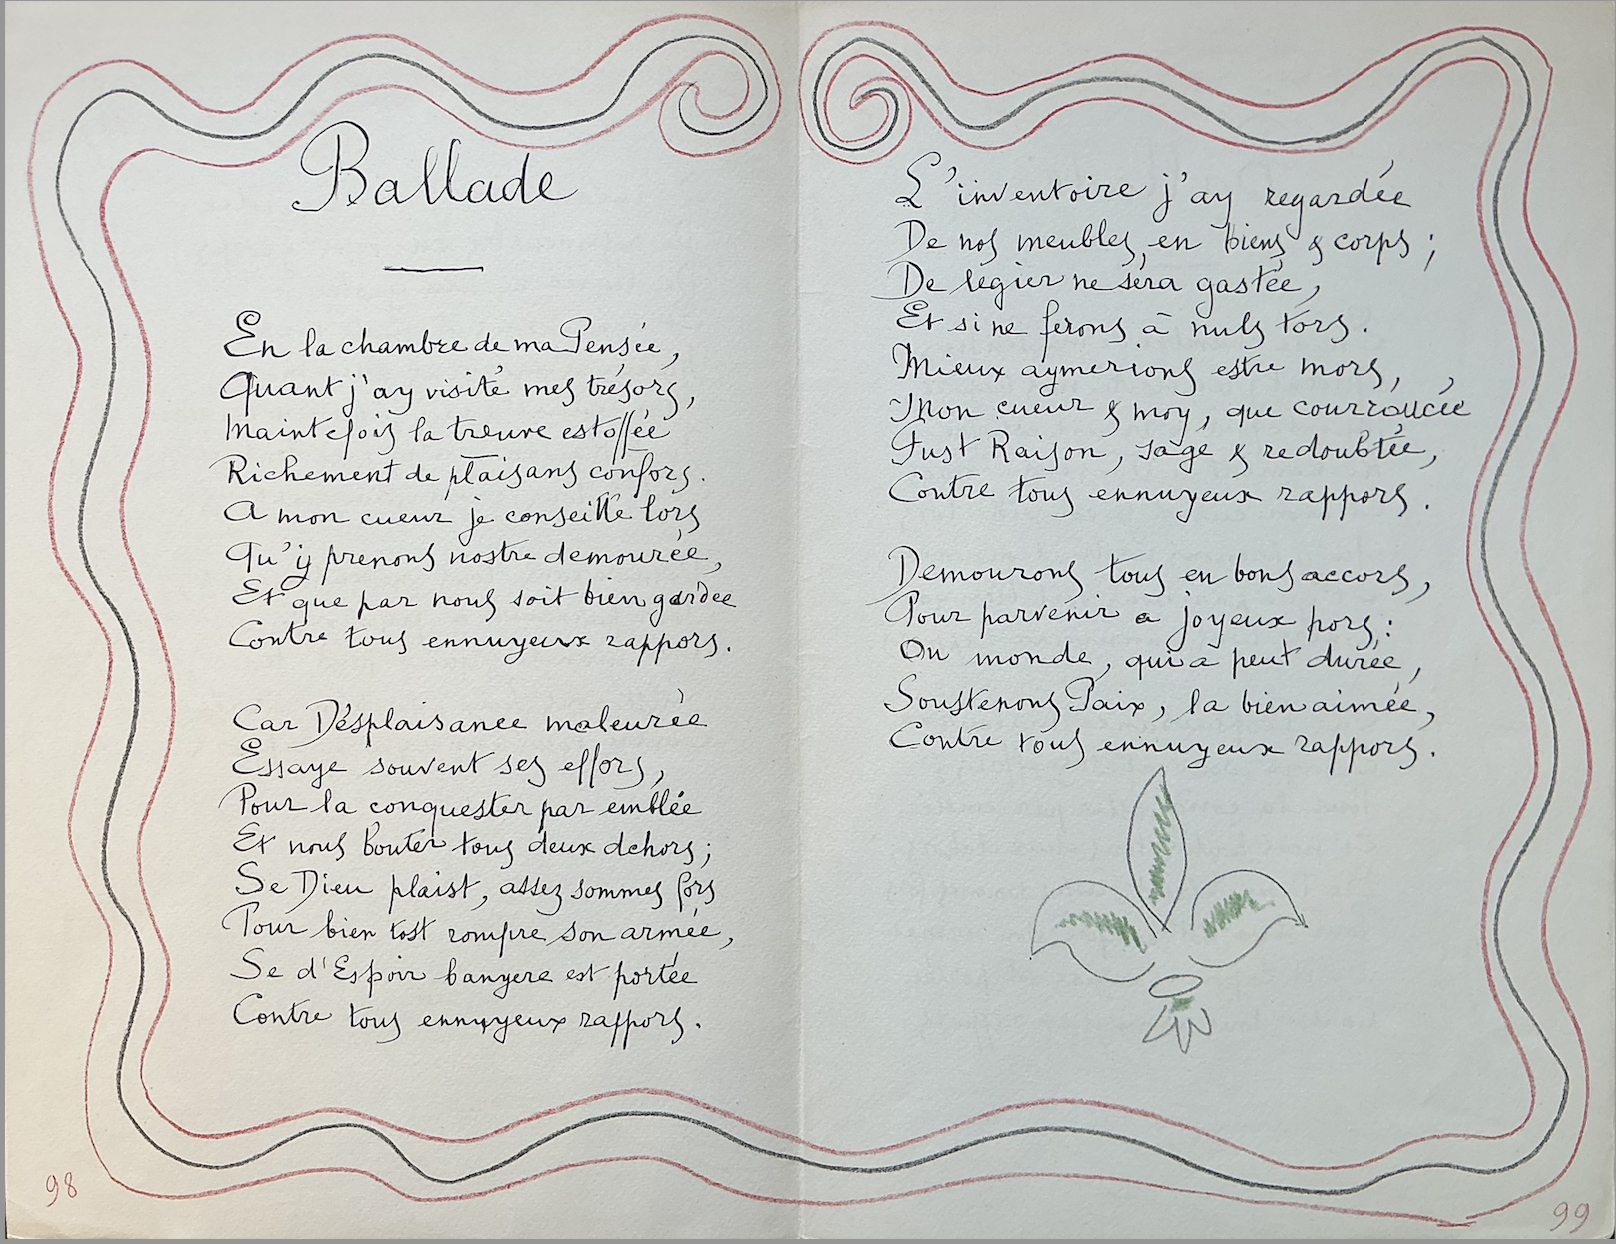 Ballade
En la chambre de ma Pensée,
Quant j'ay visité mes trésors,
Maintefois la treuve estoffée
Richement de plaisans confors.
A mon cueur je conseille lors
Qu'y prenons nostre demourée,
Et que par nous soit bien gardee
Contre tous ennuyeux rappors.
Car Désplaisance maleurée
Essaye souvent ses effors,
Pour la conquester par emblée
Et nous bouter tous deux dehors ;
Se Dieu plaist, assez sommes fors
Pour bien tost rompre son armée,
Se d'Espoir banyere est portée
Contre tous ennuyeux rappors.
98
L'inventoire j'ay regardée
De nos meubles, en biens & corps ;
De légier ne sera gastée,
Et si ne ferons à nuls tors.
Mieux aymerions estre mors,
Mon cueur & moy, que courroucée
Fust Raison, sage & redoubtée,
Contre tous ennuyeux rappors.
Demourons tous en bons accors,
Pour parvenir a joyeux pors :
Ou monde, qui a peut durée,
Soustenons Paix, la bien aimée,
Contre tous ennuyeux rappors.
99